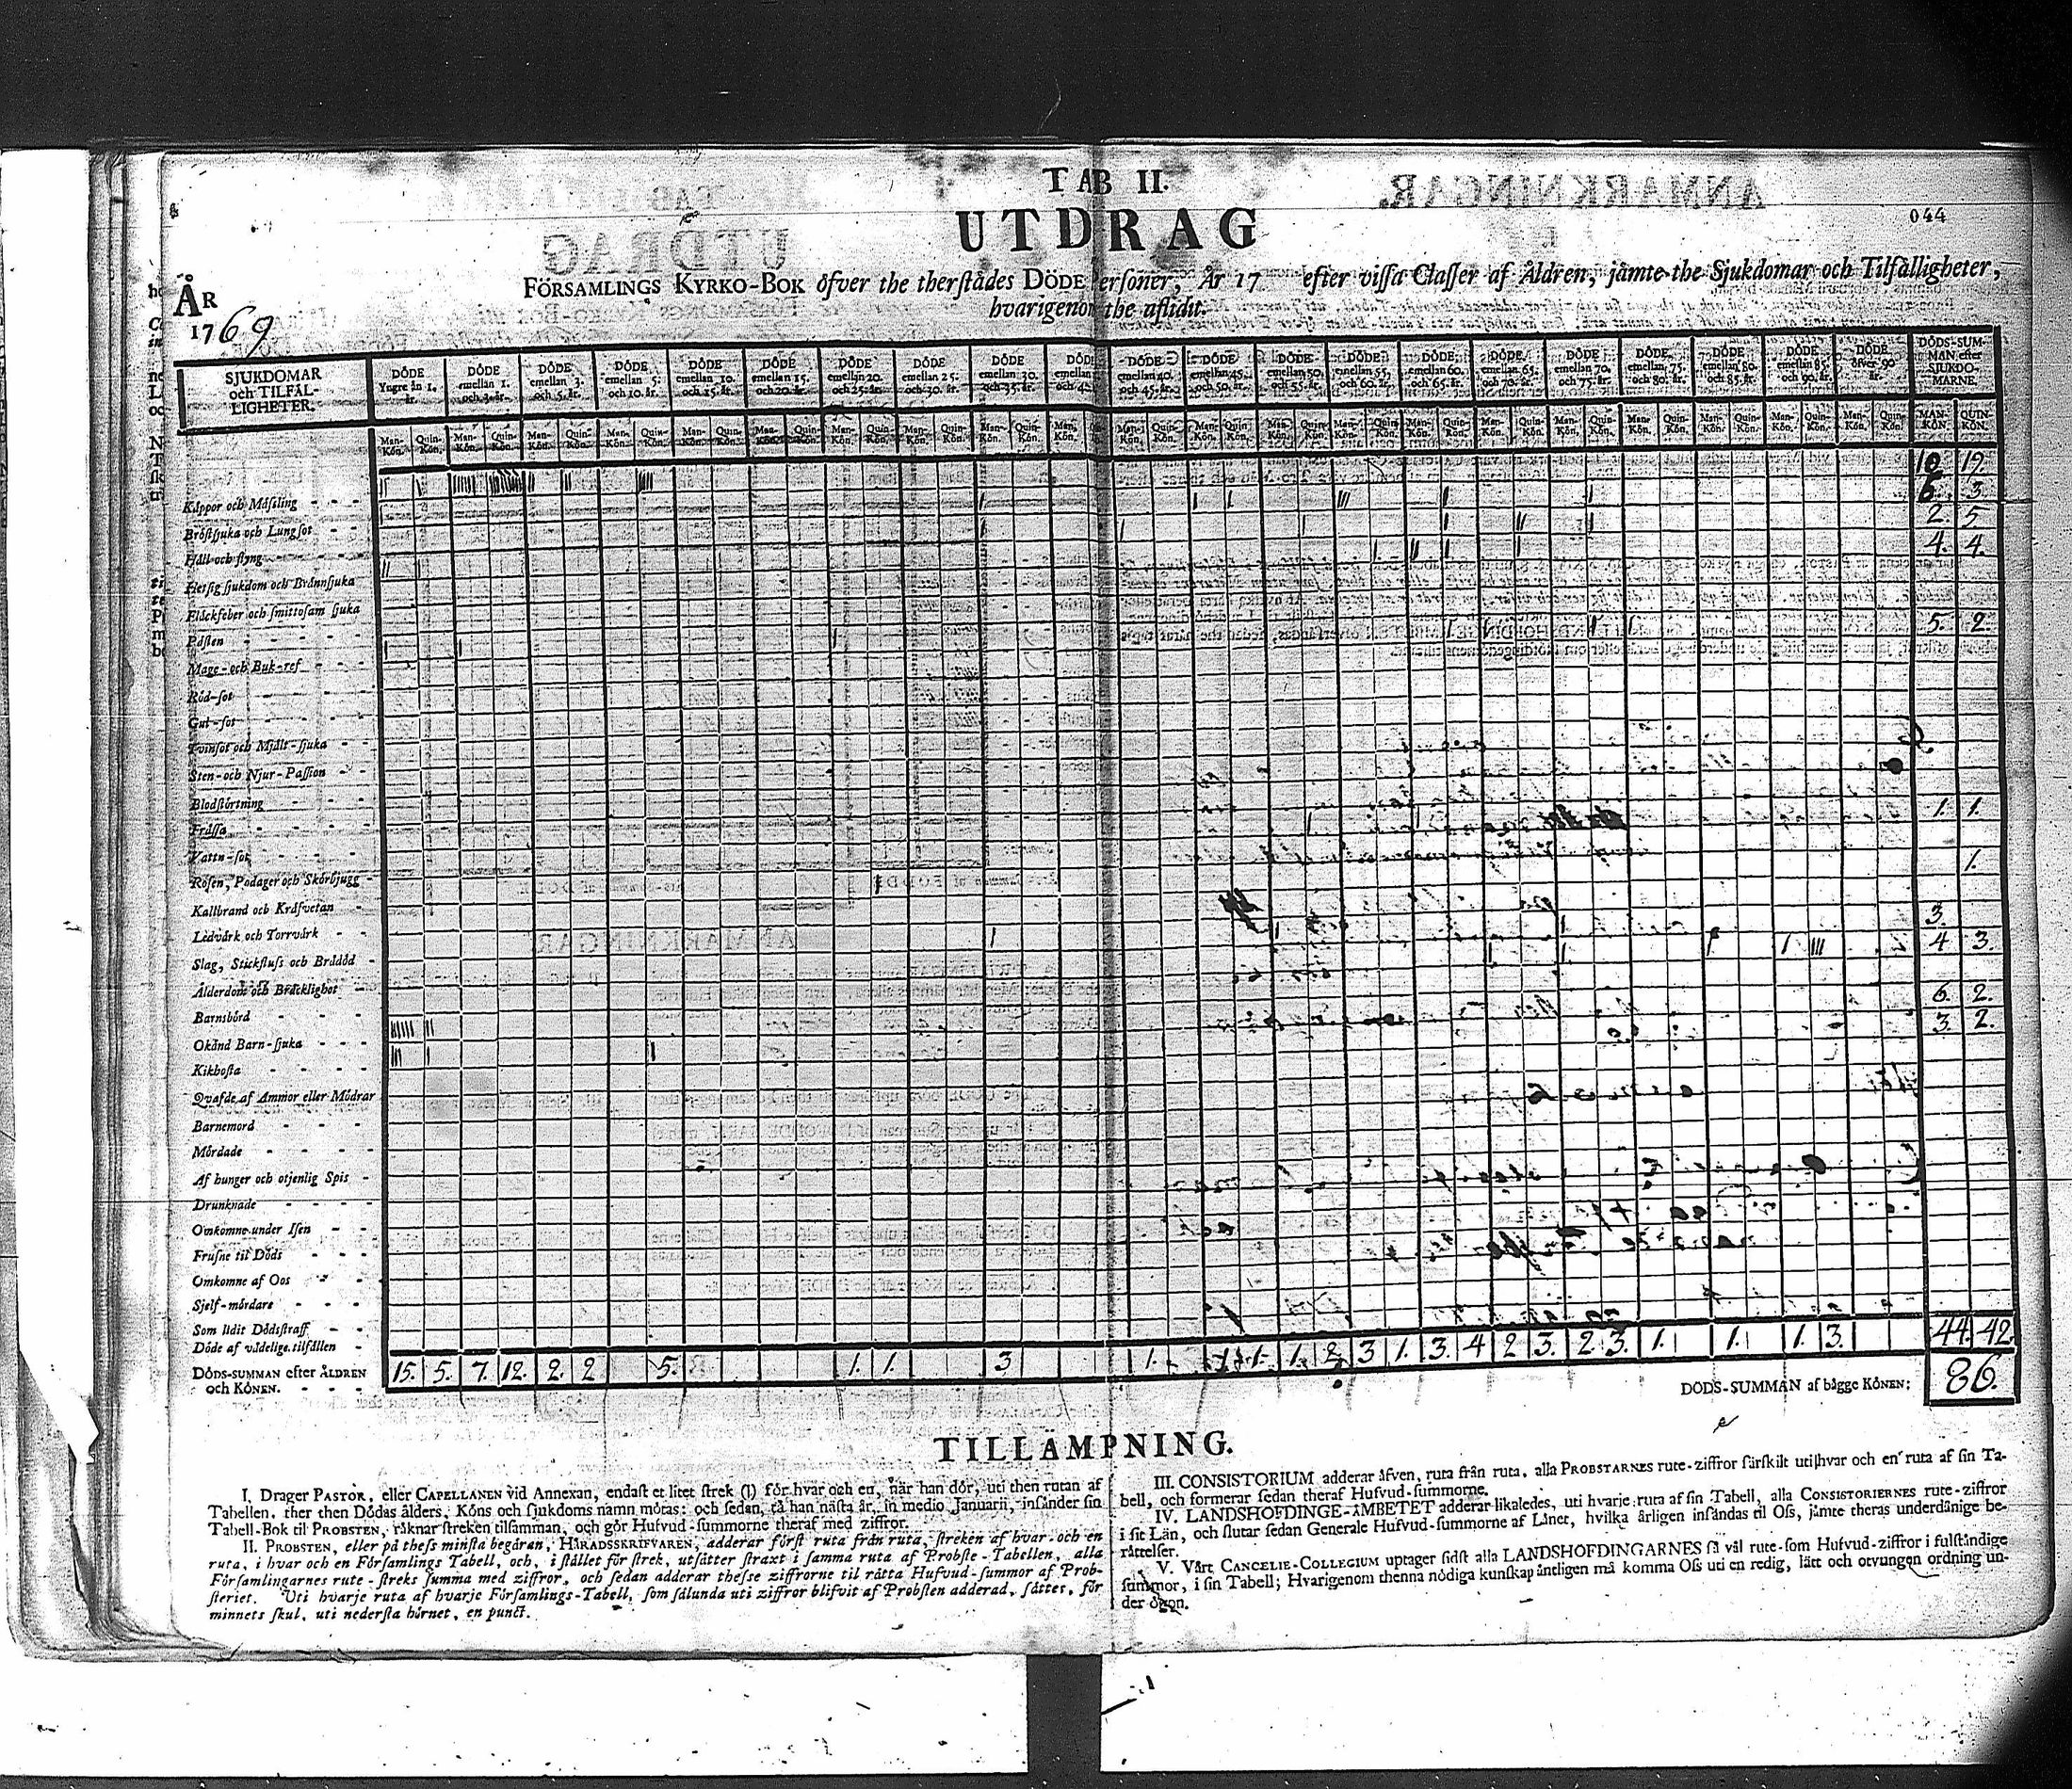 TAB II.
UTDRAG
044
ÅR
1769
FÖRSAMLINGS KYRKO-BOK öfver the therstädes DÖDE Personer, År 17 efter vissa Classer af Åldren, jämte the Sjukdomar och Tilfälligheter,
hvarigenom the aflidit.
SJUKDOMAR och TILFÄL-LIGHETER.
DÖDE Yngre än 1. år.
DÖDE emellan 1. och 3. år.
DÖDE emellan 3. och 5. år.
DÖDE emellan 5. och 10. år.
DÖDE emellan 10. och 15. år.
DÖDE emellan 15. och 20. år.
DÖDE emellan 20. och 25. år.
DÖDE emellan 25. och 30. år.
DÖDE emellan 30. och 35. år.
DÖDE emellan 40. och 45. år.
DÖDE emellan 45. och 50. år.
DÖDE emellan 50. och 55. år.
DÖDE emellan 55. och 60. år.
DÖDE emellan 60. och 65. år.
DÖDE emellan 65. och 70. år.
DÖDE emellan 70. och 75. år.
DÖDE emellan 75. och 80. år.
DÖDE emellan 80. och 85. år.
DÖDE emellan 85. och 90. år.
DÖDE öfver 90 år.
DÖDS-SUMMAN efter SJUKDOMARNE.
Man-Kön. Quin-Kön.
Koppor och Mässling 10 19.
Bröstsjuka och Lungsot 6. 3.
Håll och styng 2. 5.
Hetsig sjukdom och Brännsjuka 4. 4.
Fläckfeber och smittosam sjuka
Pästen
Mage- och Buk-ref 5. 2.
Röd-sot
Gul-sot
Tvinsot och Mjält-sjuka
Sten- och Njur-Passion
Blodstörtning
Frässa 1. 1.
Vattn-sot
Rosen, Podager och Skörbjugg 1.
Kallbrand och Kräfvetan
Ledvärk och Torrvärk 3.
Slag, Stickfluss och Brådöd 4 3.
Ålderdom och Bräcklighet
Barnsbörd 6. 2.
Okänd Barn-sjuka 3. 2.
Kikhosta
Qvafde af Ammor eller Mödrar
Barnemord
Mördade
Af hunger och otjenlig Spis
Drunknade
Omkomne under Isen
Frusne til Döds
Omkomne af Oos
Sjelf-mördare
Som lidit Dödsstraff
Döde af vådelige tilfällen 44. 42
DÖDS-SUMMAN efter ÅLDREN och KÖNEN. 15. 5. 7. 12. 2. 2 5. 1. 1. 3 1. 1. 1. 1. 2 3 1. 3. 4 2 3. 2. 3. 1. 1. 1. 3.
DÖDS-SUMMAN af bägge KÖNEN: 86.
TILLÄMPNING.
I. Drager PASTOR, eller CAPELLANEN vid Annexan, endast et litet strek (1) för hvar och en, när han dör, uti then rutan af
Tabellen, ther then Dödas ålders, Köns och sjukdoms namn mötas: och sedan, tå han nästa år, in medio Januarii, insänder sin
Tabell-Bok til PROBSTEN, räknar streken tilsamman, och gör Hufvud-summorne theraf med ziffror.
II. PROBSTEN, eller på thess minsta begäran, HÄRADSSKRIFVAREN, adderar först ruta från ruta, streken af hvar och en
ruta, i hvar och en Församlings Tabell, och, i stället för strek, utsätter straxt i samma ruta af Probste-Tabellen, alla
Församlingarnes rute-streks summa med ziffror, och sedan adderar thesse ziffrorne til rätta Hufvud-summor af Prob-
steriet. Uti hvarje ruta af hvarje Församlings-Tabell, som sålunda uti ziffror blifvit af Probsten adderad, sättes, för
minnets skul, uti nedersta hörnet, en punct.
III. CONSISTORIUM adderar äfven, ruta från ruta, alla PROBSTARNES rute-ziffror särskilt uti hvar och en ruta af sin Ta-
bell, och formerar sedan theraf Hufvud-summorne.
IV. LANDSHÖFDINGE-ÄMBETET adderar likaledes, uti hvarje ruta af sin Tabell, alla CONSISTORIERNES rute-ziffror
i sit Län, och slutar sedan Generale Hufvud-summorne af Länet, hvilka årligen insändas til Oss, jämte theras underdånige be-
rättelser.
V. Vårt CANCELIE-COLLEGIUM uptager sidst alla LANDSHÖFDINGARNES så väl rute-som Hufvud-ziffror i fulständige
summor, i sin Tabell; Hvarigenom thenna nödiga kunskap äntligen må komma Oss uti en redig, lätt och otvungen ordning un-
der ögon.